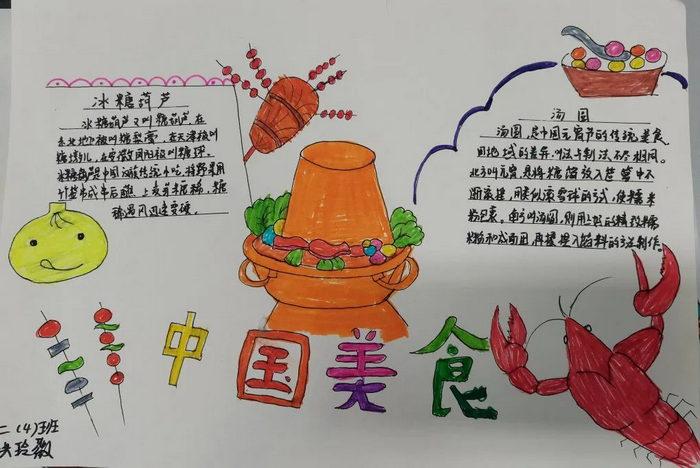 冰糖葫芦
冰糖葫芦又叫糖葫芦,在
东北地区被叫糖梨膏,在天津被叫
糖墩儿,在安徽凤阳被叫糖球。
冰糖葫芦是中国汉族传统小吃,将野果用
竹签串成串后蘸上麦芽糖稀,糖
稀遇风迅速变硬。
汤圆
汤圆,是中国元宵节的传统美食
因地域的差异,叫法与制法不尽相同。
北方叫元宵,是将糖馅放入笸箩中不
断滚
粉包裹。南方叫汤圆,则用上好的糯
粉和成面团,再揉捏入馅料的方法制作。
中国美食
二(4)班